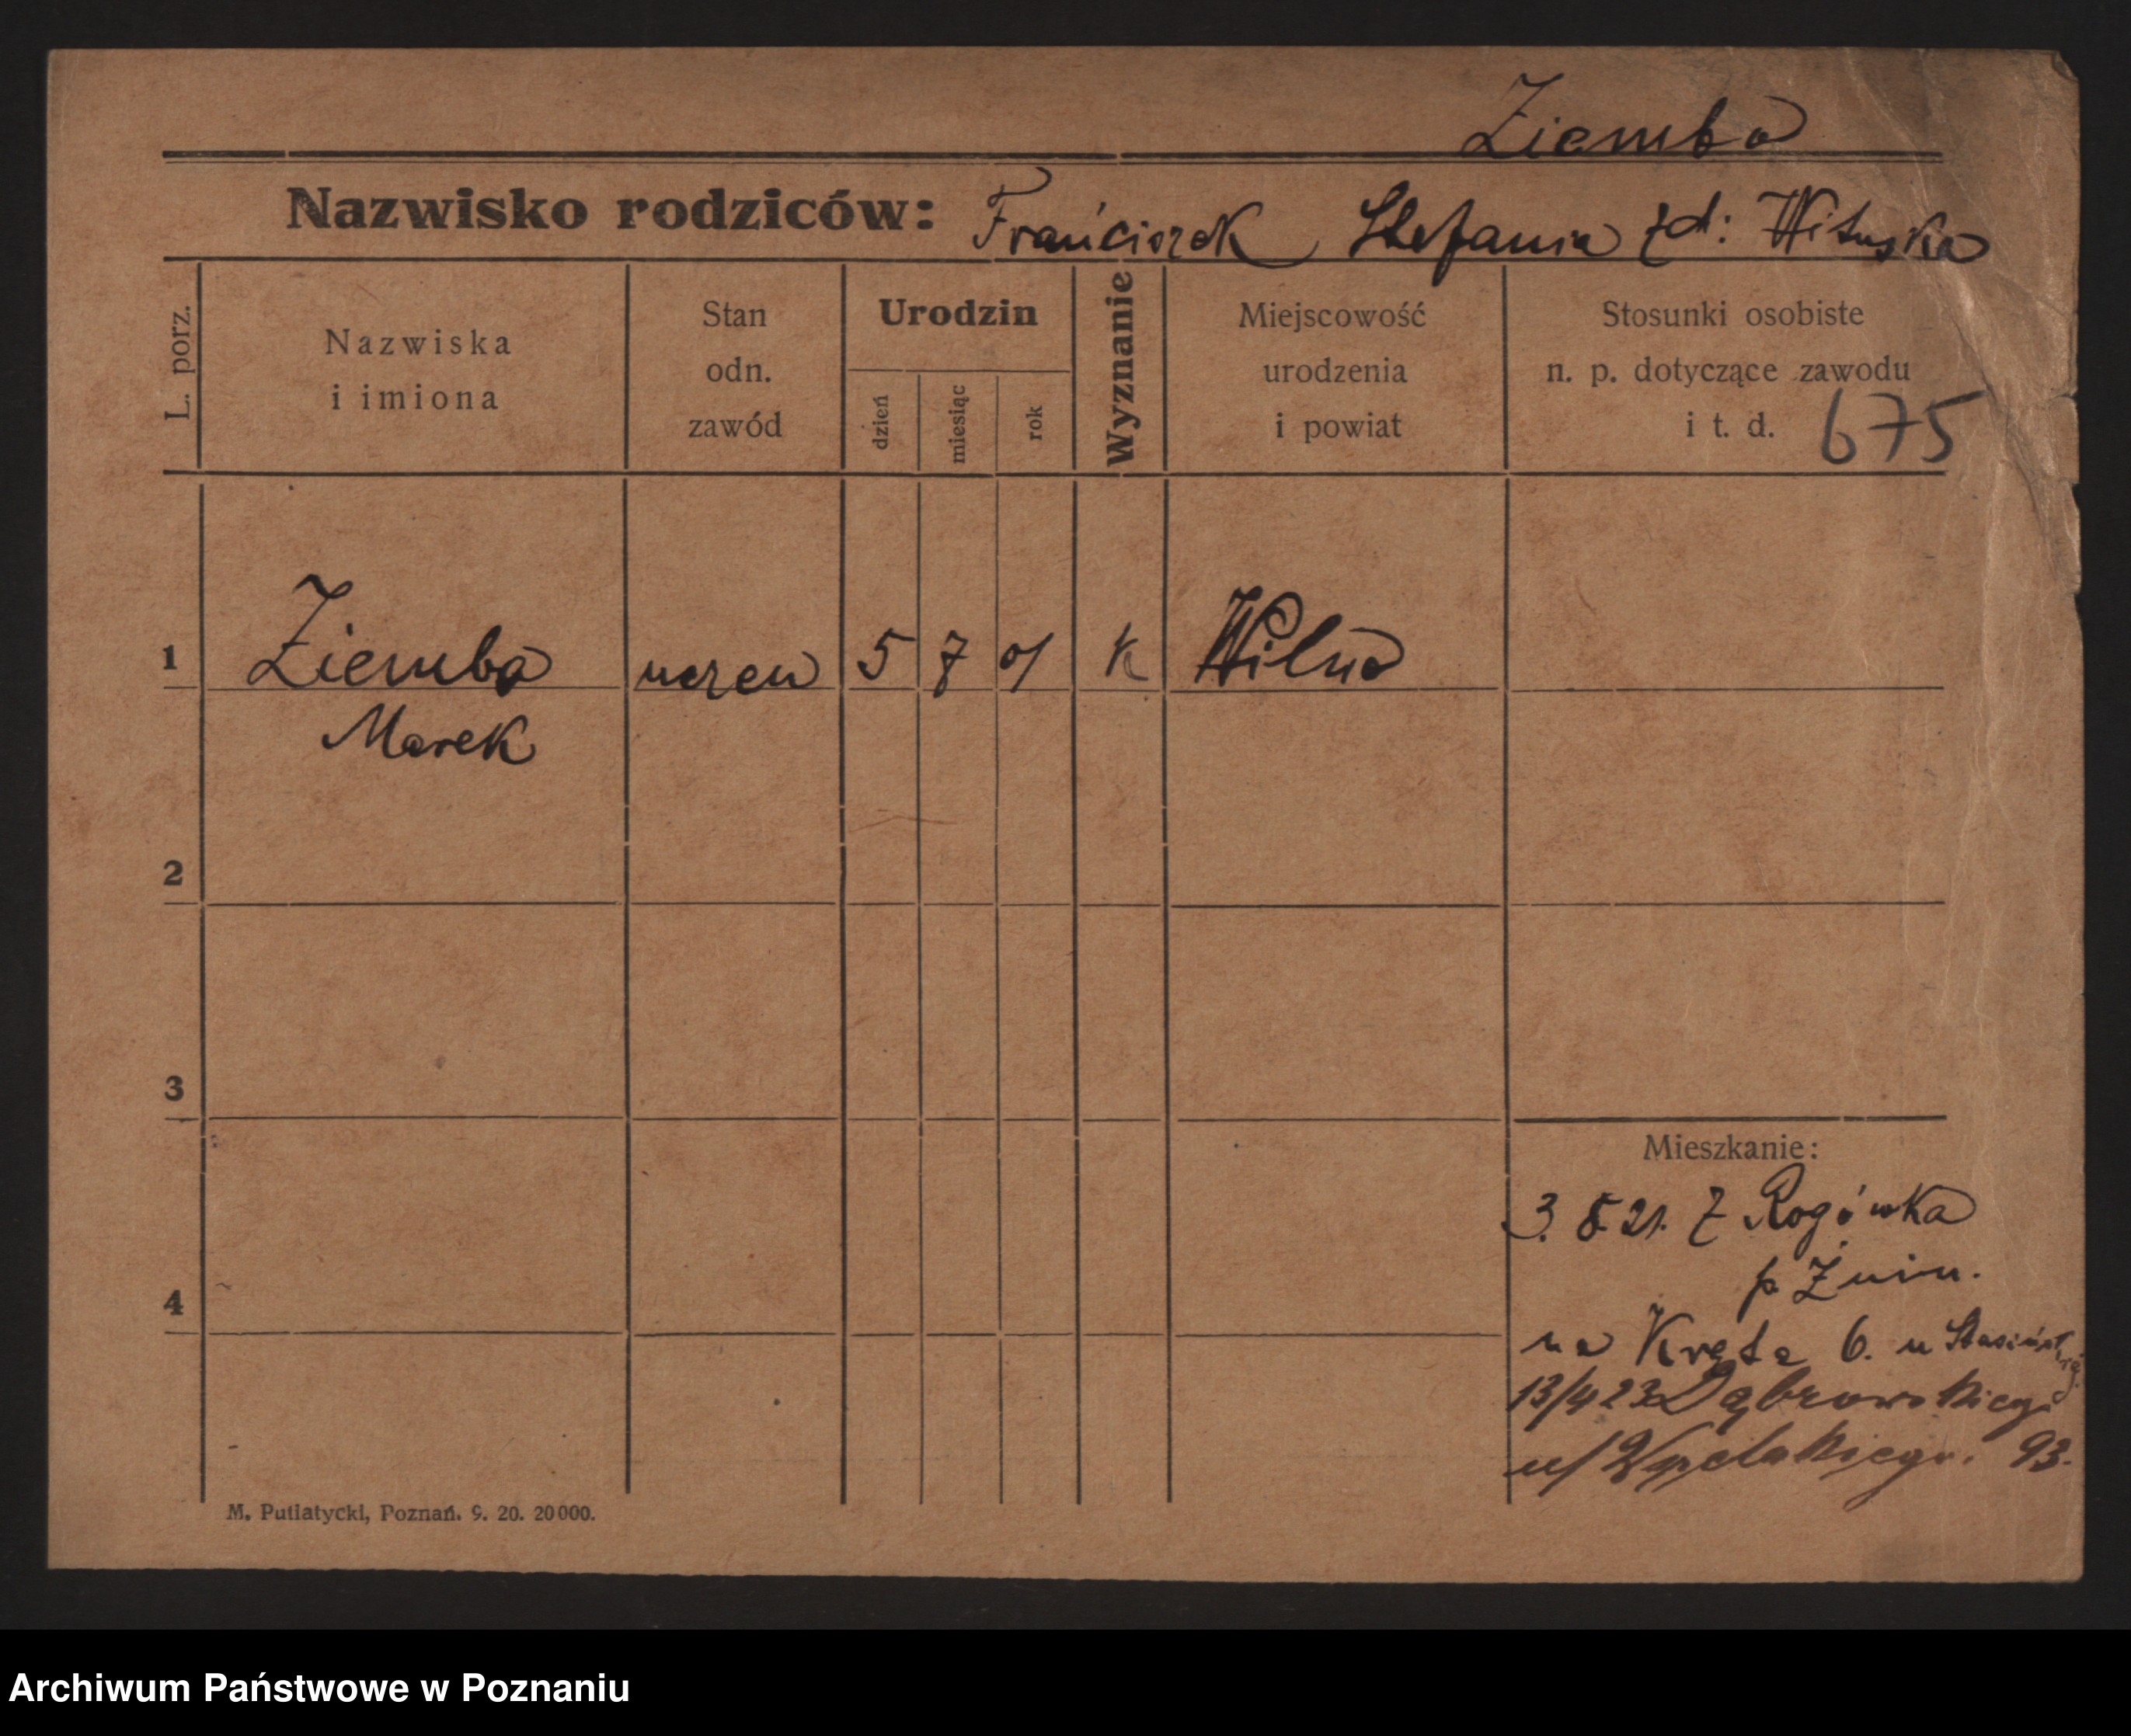 Ziemba
Nazwisko rodziców: Franciszek Stefania zd: Wituska
L. porz.
Nazwiska
i imiona
Stan
odn.
zawód
Urodzin
dzień
miesiąc
rok
Wyznanie
Miejscowość
urodzenia
i powiat
Stosunki osobiste
n. p. dotyczące zawodu
i t. d. 675
1 Ziemba uczeń 5 7 01 K Wilno
Marek
2
3
Mieszkanie:
3. 5. 21. Z Rogówka
p Żnin.
4
na Kręta 6. u
13/4 23 Dąbrowskiego
93.
M. Putiatycki, Poznań. 9. 20. 20000.
Archiwum Państwowe w Poznaniu